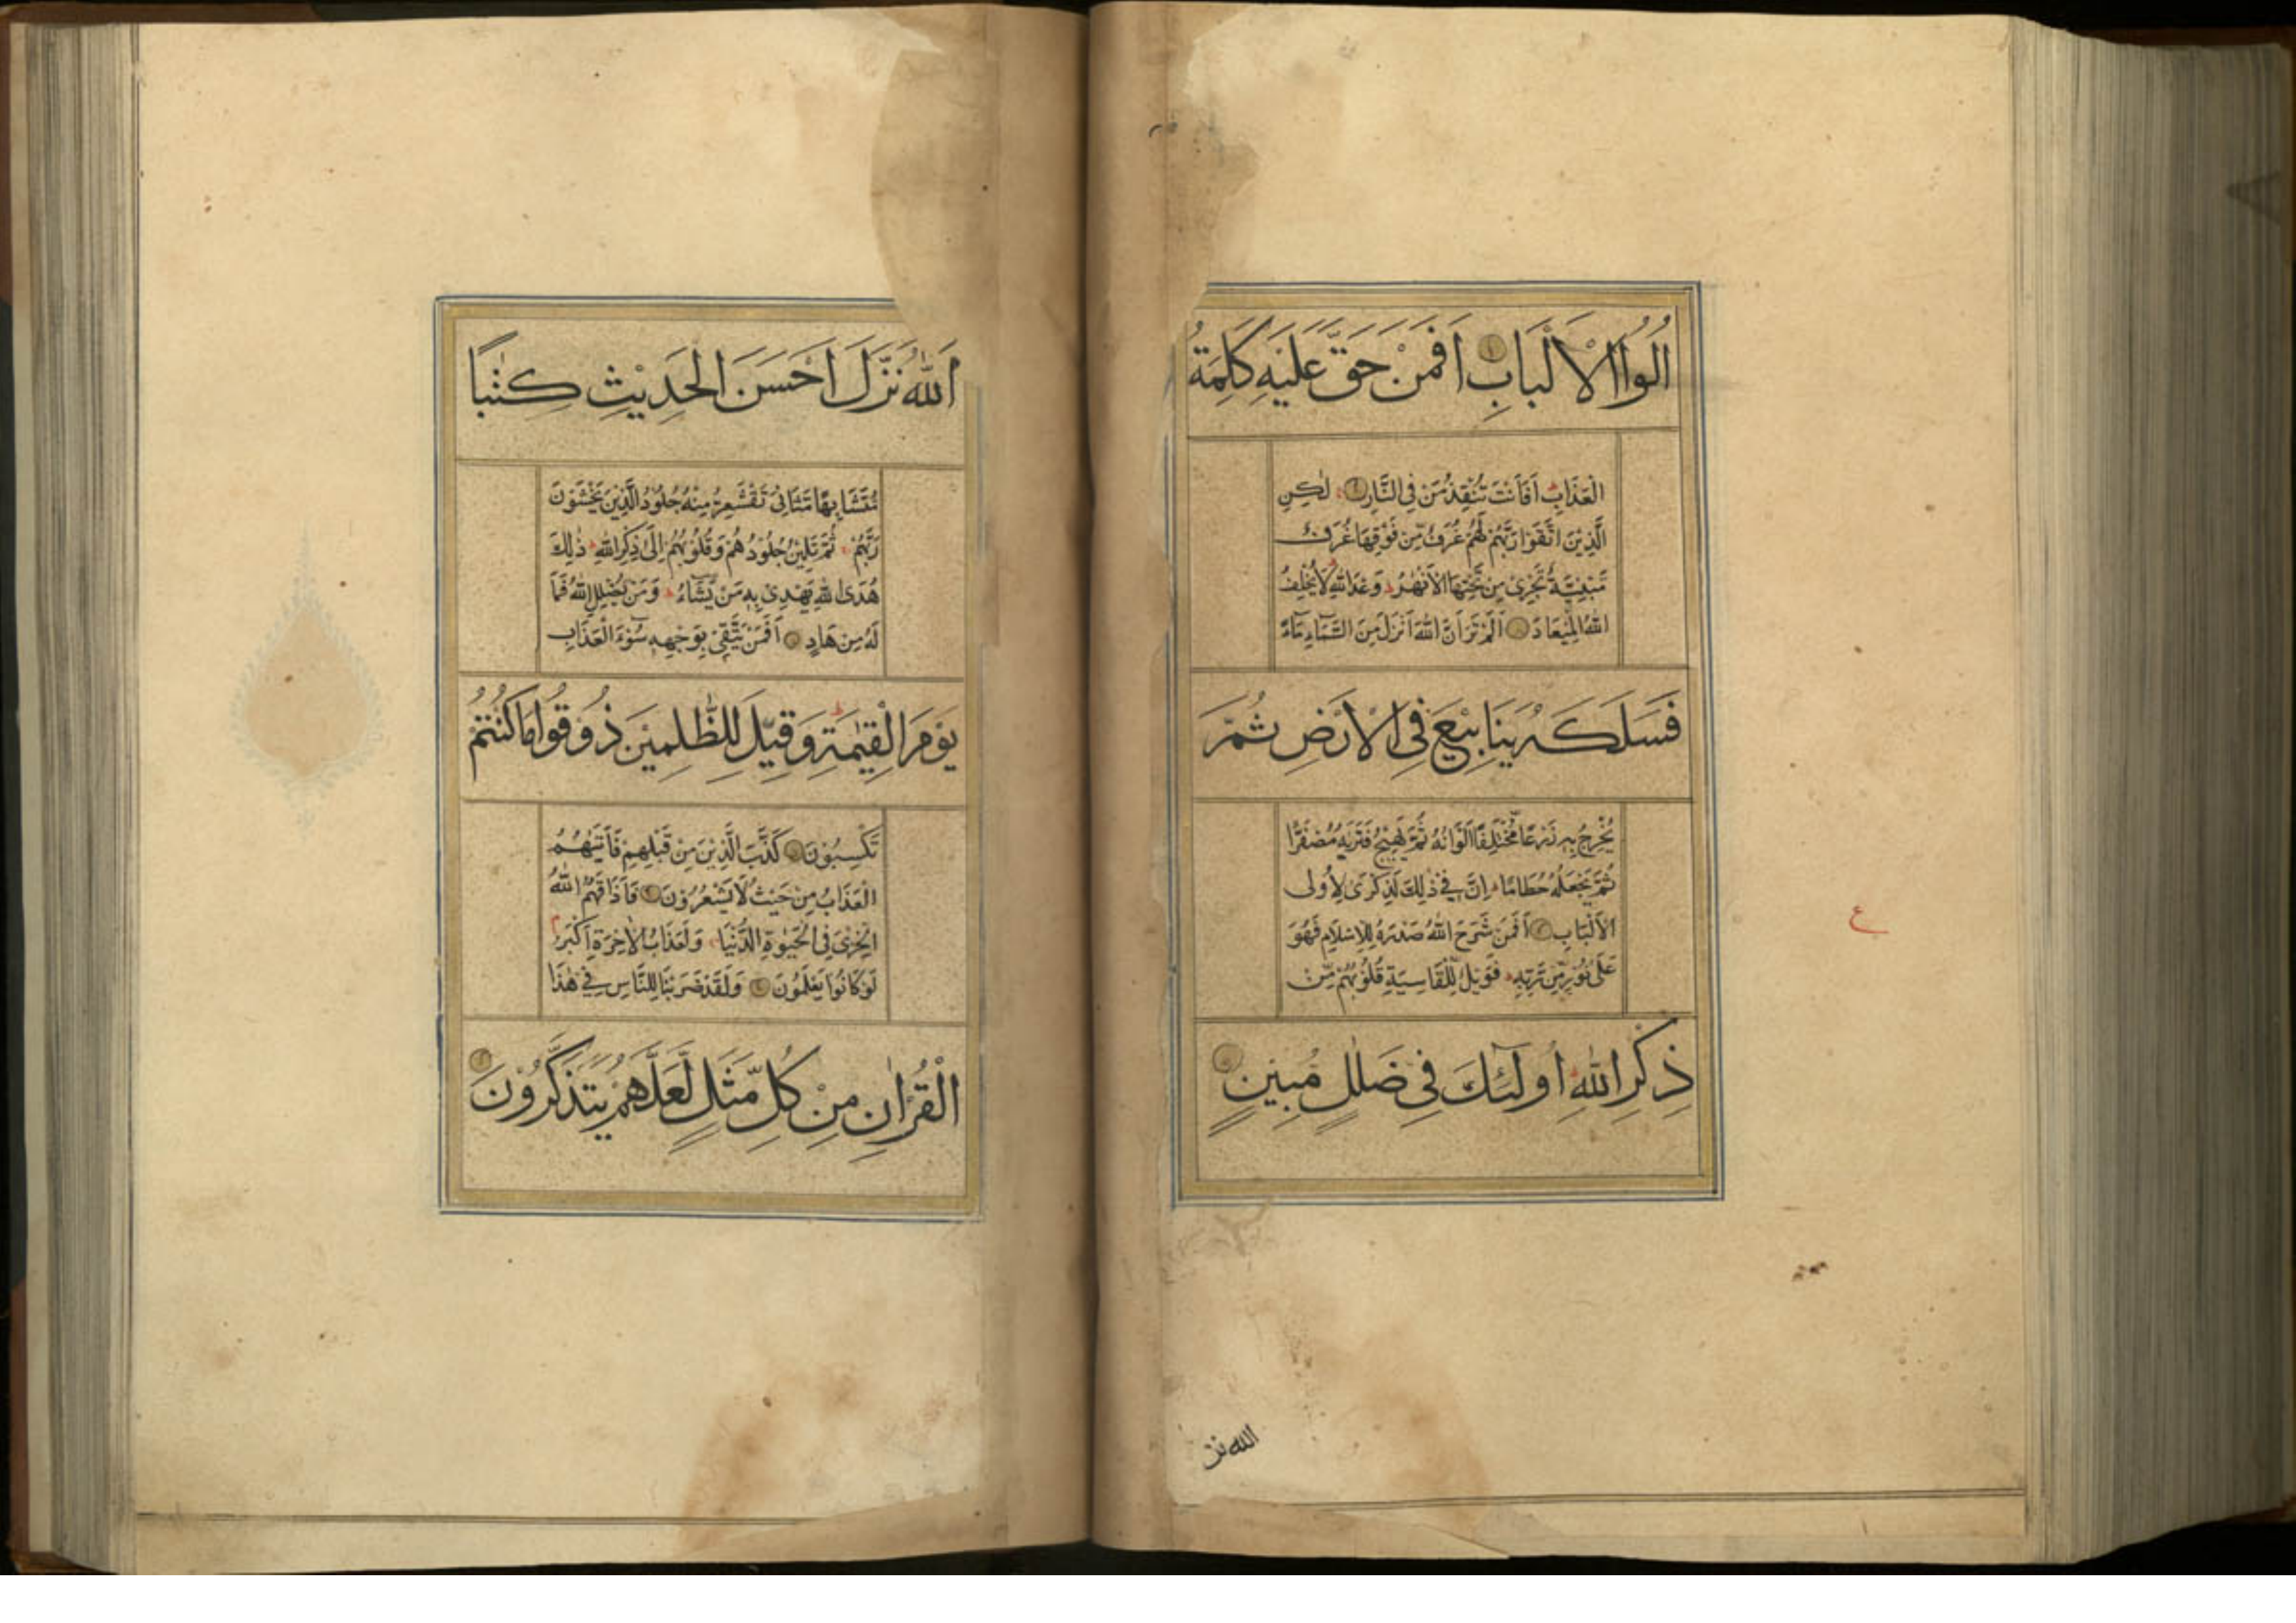 اُولُوا الْاَلْبَابِ اَفَمَنْ حَقَّ عَلَيْهِ كَلِمَةُ
الْعَذَابِ اَفَاَنْتَ تُنْقِذُ مَنْ فِى النَّارِ لٰكِنِ
الَّذِيْنَ اتَّقَوْا رَبَّهُمْ لَهُمْ غُرَفٌ مِّنْ فَوْقِهَا غُرَفٌ
مَّبْنِيَّةٌ تَجْرِىْ مِنْ تَحْتِهَا الْاَنْهٰرُ وَعْدَ اللّٰهِ لَا يُخْلِفُ
اللّٰهُ الْمِيْعَادَ اَلَمْ تَرَ اَنَّ اللّٰهَ اَنْزَلَ مِنَ السَّمَاءِ مَآءً
فَسَلَكَهُ يَنَابِيْعَ فِى الْاَرْضِ ثُمَّ
يُخْرِجُ بِهٖ زَرْعًا مُّخْتَلِفًا اَلْوَانُهُ ثُمَّ يَهِيْجُ فَتَرٰىهُ مُصْفَرًّا
ثُمَّ يَجْعَلُهُ حُطَامًا اِنَّ فِىْ ذٰلِكَ لَذِكْرٰى لِاُولِى
الْاَلْبَابِ اَفَمَنْ شَرَحَ اللّٰهُ صَدْرَهُ لِلْاِسْلَامِ فَهُوَ
عَلٰى نُوْرٍ مِّنْ رَّبِّهٖ فَوَيْلٌ لِّلْقَاسِيَةِ قُلُوْبُهُمْ مِّنْ
ذِكْرِ اللّٰهِ اُولٰٓئِكَ فِى ضَلٰلٍ مُّبِيْنٍ
ع
الله نز
اَللّٰهُ نَزَّلَ اَحْسَنَ الْحَدِيْثِ كِتٰبًا
مُّتَشَابِهًا مَّثَانِىَ تَقْشَعِرُّ مِنْهُ جُلُوْدُ الَّذِيْنَ يَخْشَوْنَ
رَبَّهُمْ ثُمَّ تَلِيْنُ جُلُوْدُهُمْ وَقُلُوْبُهُمْ اِلٰى ذِكْرِ اللّٰهِ ذٰلِكَ
هُدَى اللّٰهِ يَهْدِىْ بِهٖ مَنْ يَّشَآءُ وَمَنْ يُضْلِلِ اللّٰهُ فَمَا
لَهُ مِنْ هَادٍ اَفَمَنْ يَّتَّقِىْ بِوَجْهِهٖ سُوْٓءَ الْعَذَابِ
يَوْمَ الْقِيٰمَةِ وَقِيْلَ لِلظّٰلِمِيْنَ ذُوْقُوْا مَا كُنْتُمْ
تَكْسِبُوْنَ كَذَّبَ الَّذِيْنَ مِنْ قَبْلِهِمْ فَاَتٰىهُمُ
الْعَذَابُ مِنْ حَيْثُ لَا يَشْعُرُوْنَ فَاَذَاقَهُمُ اللّٰهُ
الْخِزْىَ فِى الْحَيٰوةِ الدُّنْيَا وَلَعَذَابُ الْاٰخِرَةِ اَكْبَرُ
لَوْ كَانُوْا يَعْلَمُوْنَ وَلَقَدْ ضَرَبْنَا لِلنَّاسِ فِىْ هٰذَا
الْقُرْاٰنِ مِنْ كُلِّ مَثَلٍ لَّعَلَّهُمْ يَتَذَكَّرُوْنَ